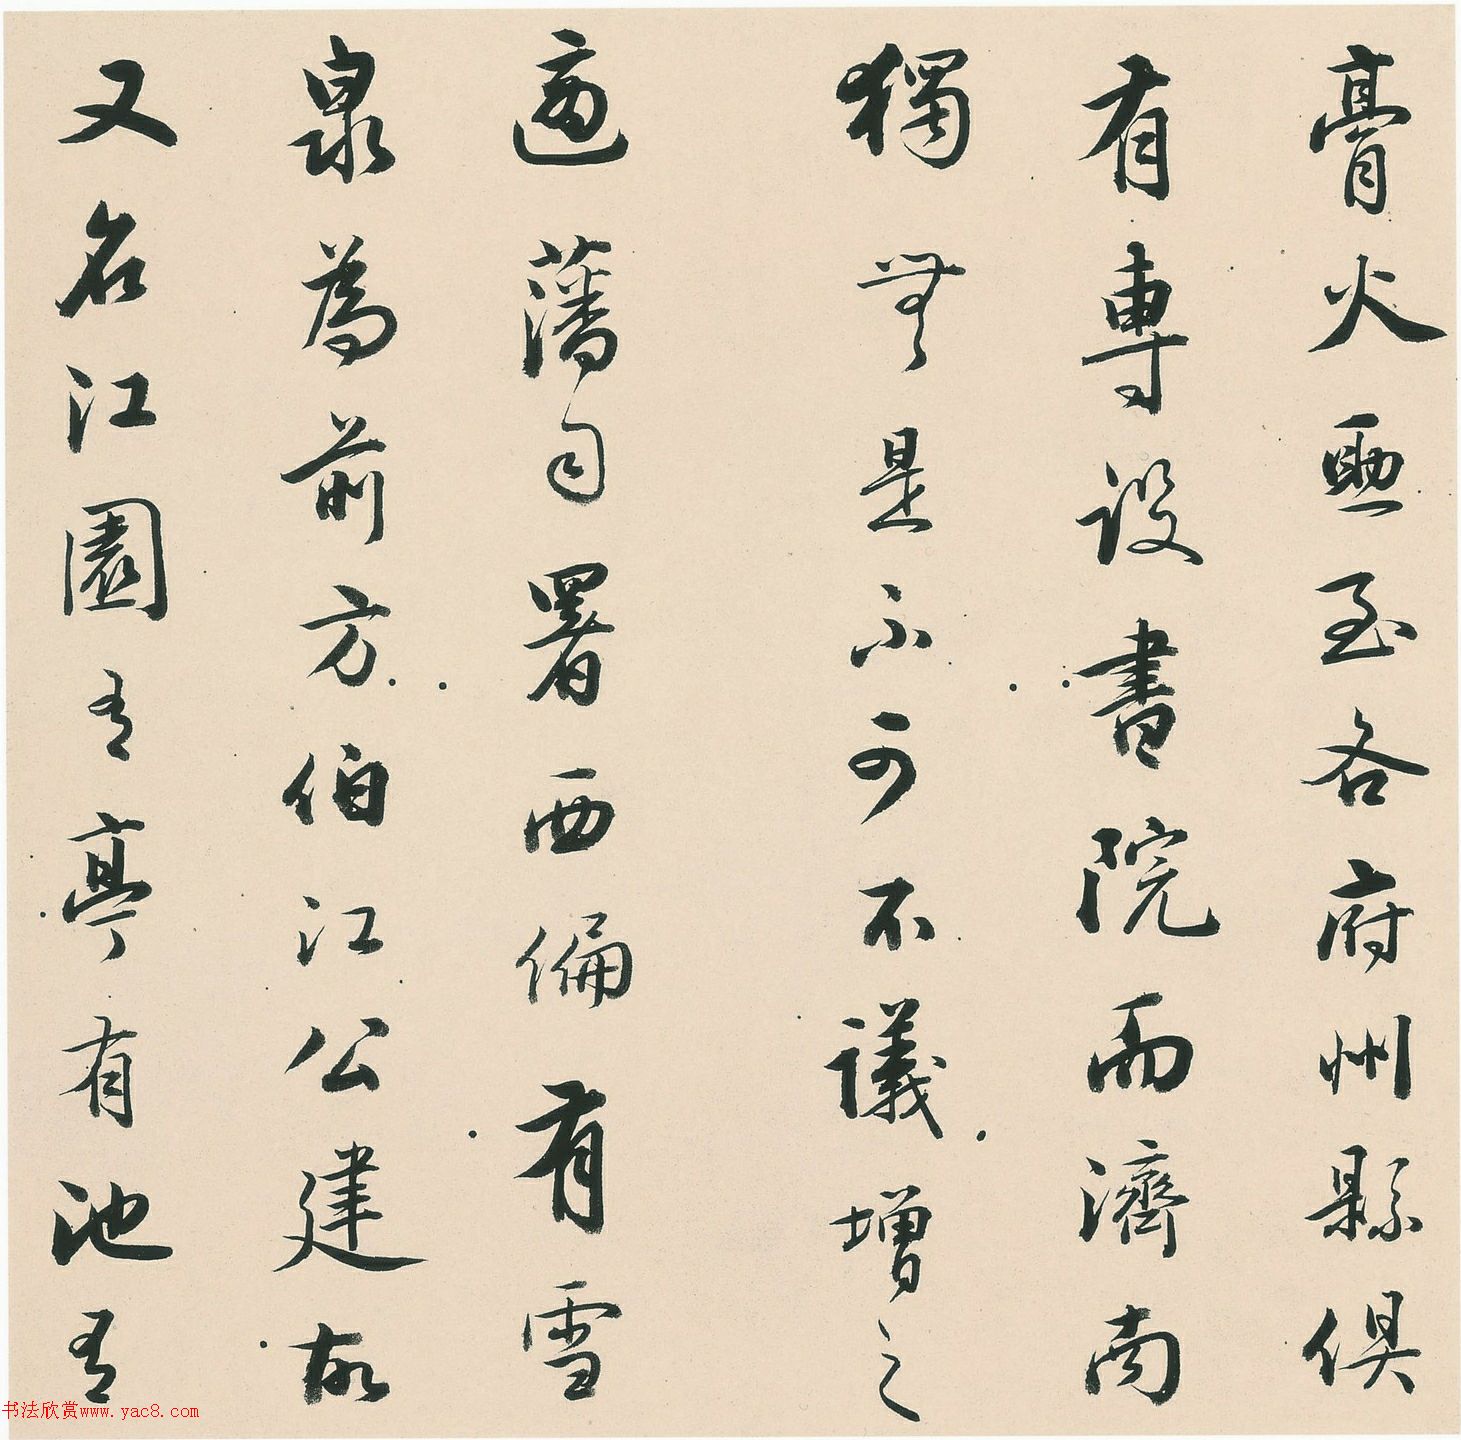 膏火曁至各府州縣俱
有專設書院而濟南
獨無是不可不議增之
適藩司署西偏有雪
泉為前方伯江公建故
又名江園有亭有池有
书法欣赏www.yac8.com